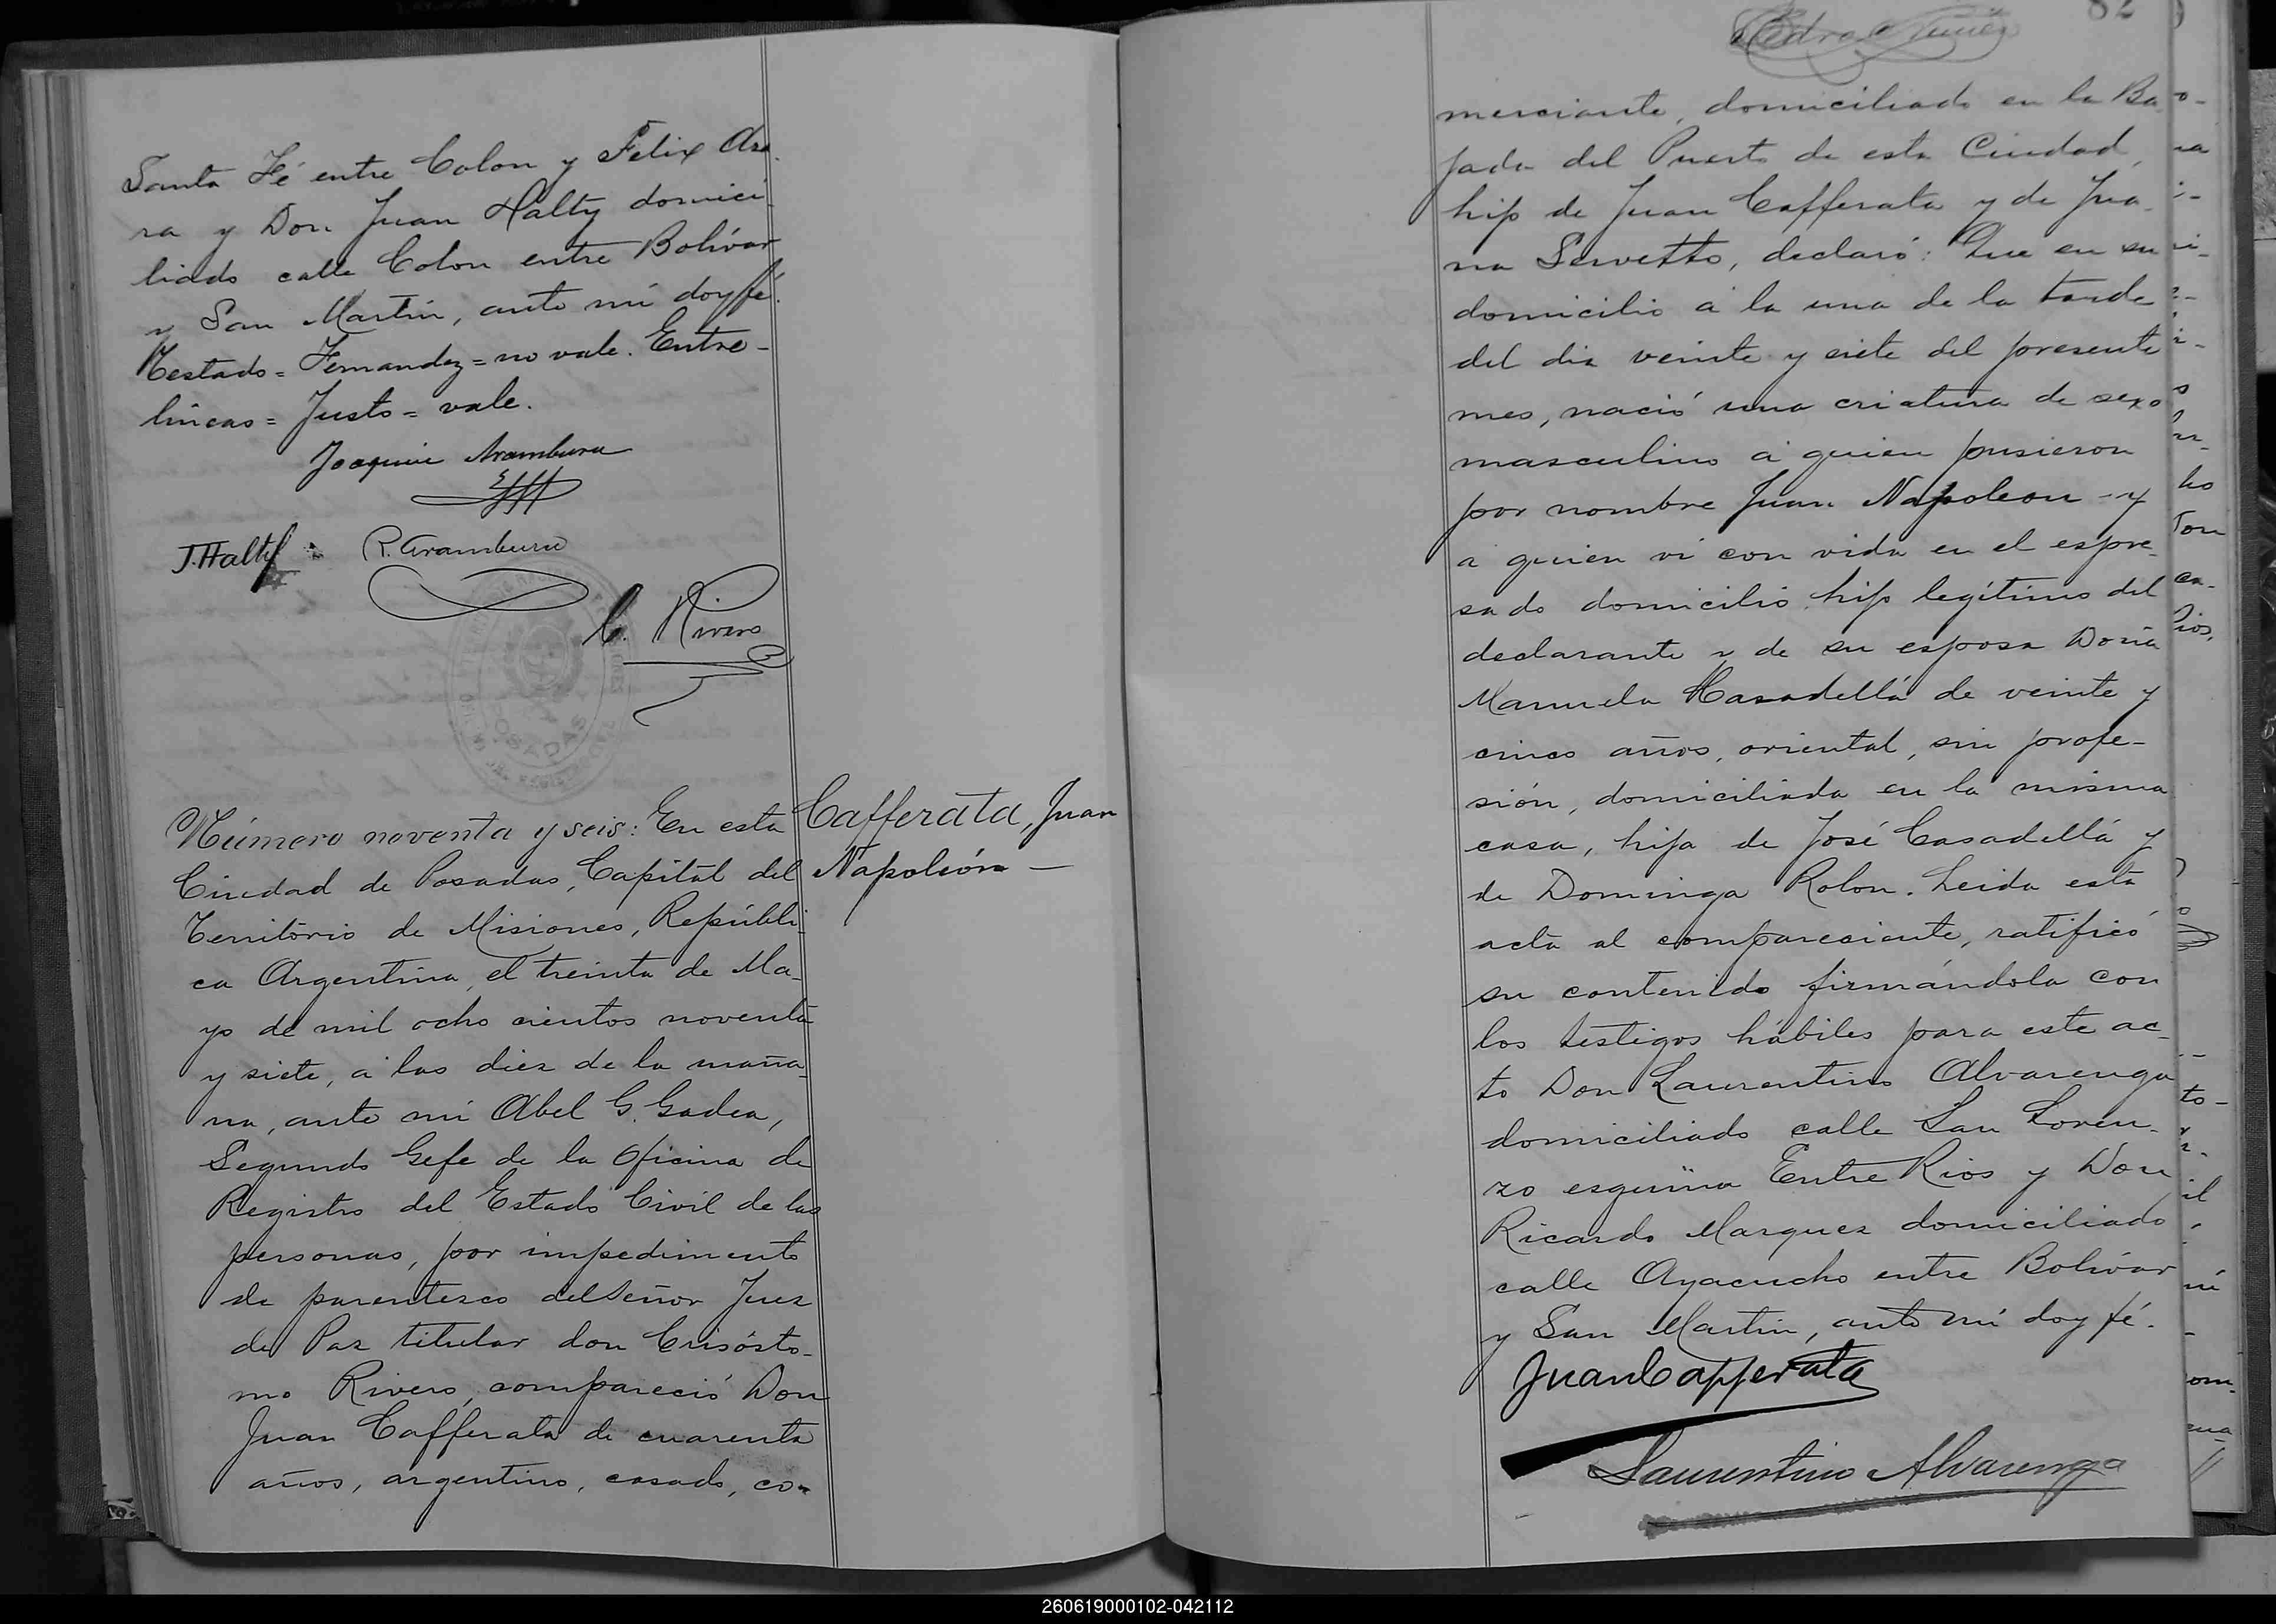 Santa Fé entre Colon y Felix Aza
ra y Don Juan Halty domici
liado calle Colon entre Bolívar
y San Martin, ante mí doy fé.
Testado = Fernandez = no vale. Entre-
lineas = Justo = vale.
Joaquin Aramburu
J. Halty R. Aramburu
C. Rivero
POSADAS
Número noventa y seis: En esta
Ciudad de Posadas, Capital del
Territorio de Misiones, Repúbli
ca Argentina, el treinta de Ma-
yo de mil ocho cientos noventa
y siete, á las diez de la maña
na, ante mí Abel G. Gadea,
Segundo Gefe de la Oficina de
Registro del Estado Civil de las
personas, por impedimento
de parentesco del Señor Juez
de Paz titular don Crisósto-
mo Rivero, compareció Don
Juan Cafferata de cuarenta
años, argentino, casado, co-
Cafferata, Juan
Napoleón —
82
Pedro Nuñez
merciante, domiciliado en la Ba
jada del Puerto de esta Ciudad,
hijo de Juan Cafferata y de Jua-
na Servetto, declaró: Que en su
domicilio á la una de la tarde
del dia veinte y siete del presente
mes, nació una criatura de sexo
masculino á quien pusieron
por nombre Juan Napoleon - y
a quien ví con vida en el espre-
sado domicilio, hijo legítimo del
declarante y de su esposa Doña
Manuela Casadellá de veinte y
cinco años, oriental, sin profe-
sión, domiciliada en la misma
casa, hija de José Casadellá y
de Dominga Rolon. Leida esta
acta al compareciente, ratificó
su contenido firmándola con
los testigos hábiles para este ac-
to Don Laurentino Alvarenga
domiciliado calle San Loren-
zo esquina Entre Rios y Don
Ricardo Marquez domiciliado
calle Ayacucho entre Bolívar
y San Martin, ante mí doy fé.
Juan Cafferata
Laurentino Alvarenga
260619000102-042112